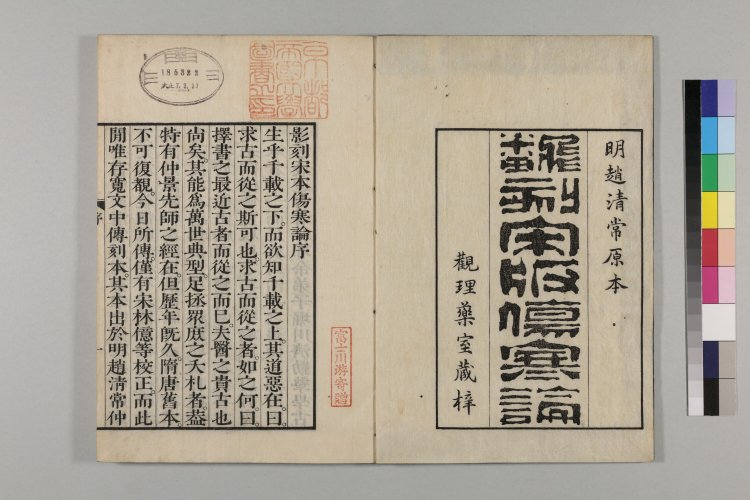 明趙清常原本
翻刻宋版傷寒論
觀理藥室藏梓
京都
帝國大學
圖書之印
185322
大正7.3.31
富士川游寄贈
影刻宋本傷寒論序
生乎千載之下。而欲知千載之上。其道惡在。曰。
求古而從之斯可也。求古而從之者。如之何。曰。
擇書之最近古者而從之而已。夫醫之貴古也
尙矣。其能爲萬世典型足拯眾庶之夭札者。葢
特有仲景先師之經在。但歷年旣久。隋唐舊本。
不可復覩。今日所傳。僅有宋林億等校正。而此
開唯存寬文中傳刻本。其本出於明趙清常仲
序
一